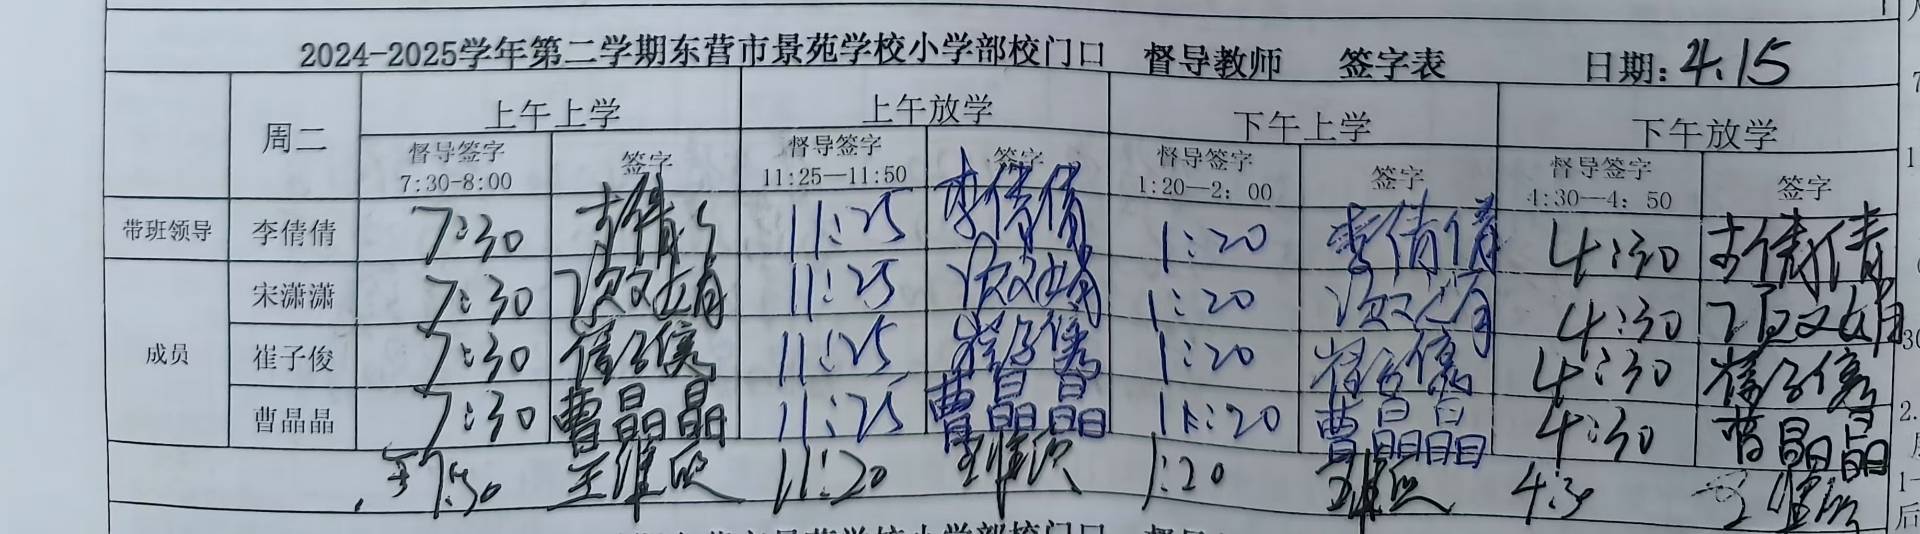 2024-2025学年第二学期东营市景苑学校小学部校门口 督导教师 签字表 日期: 4.15
周二 上午上学 上午放学 下午上学 下午放学
督导签字 签字 督导签字 签字 督导签字 签字 督导签字 签字
7:30-8:00 11:25—11:50 1:20—2: 00 4:30—4: 50
带班领导 李倩倩 7:30 李倩倩 11:25 李倩倩 1:20 李倩倩 4:30 李倩倩
成员
宋潇潇 7:30 11:25 1:20 4:30
崔子俊 7:30 崔子俊 11:25 崔子俊 1:20 崔子俊 4:30 崔子俊
曹晶晶 7:30 曹晶晶 11:25 曹晶晶 1:20 曹晶晶 4:30 曹晶晶
7:30 11:20 1:20 4:30